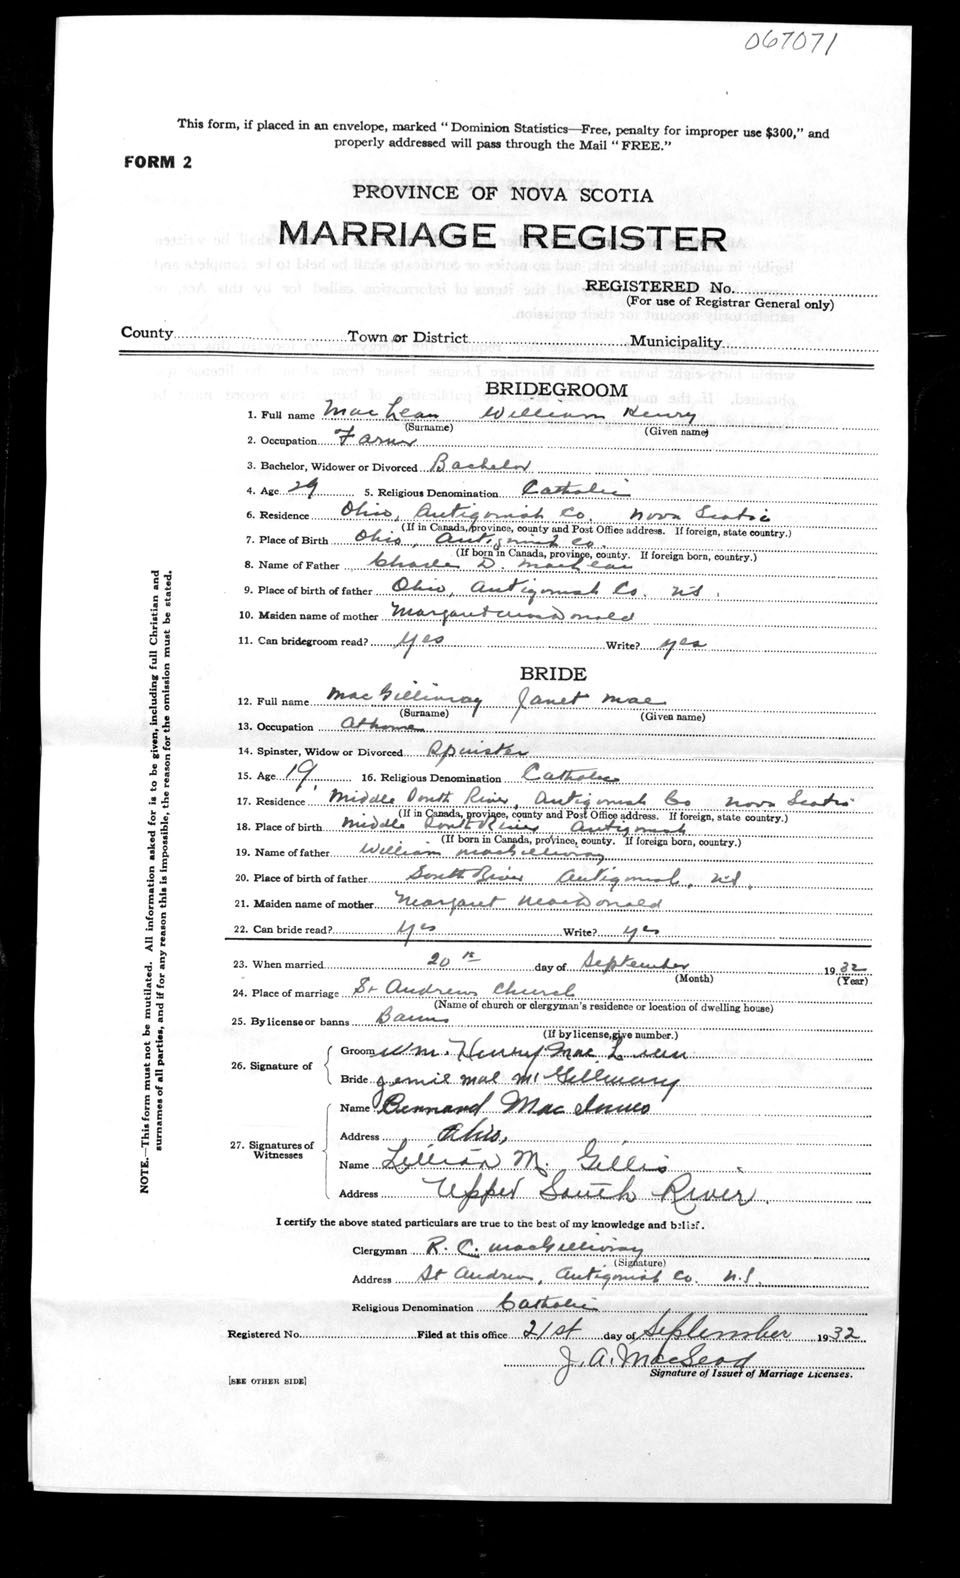 067071
This form, if placed in an envelope, marked "Dominion Statistics—Free, penalty for improper use $300," and
properly addressed will pass through the Mail "FREE."
FORM 2
PROVINCE OF NOVA SCOTIA
MARRIAGE REGISTER
REGISTERED No.
(For use of Registrar General only)
County Town or District Municipality
BRIDEGROOM
1. Full name MacLean William Henry
(Surname) (Given name)
2. Occupation Farmer
3. Bachelor, Widower or Divorced Bachelor
4. Age 29 5. Religious Denomination Catholic
6. Residence Ohio, Antigonish Co. Nova Scotia
(If in Canada, province, county and Post Office address. If foreign, state country.)
7. Place of Birth Ohio, Antigonish Co.
(If born in Canada, province, county. If foreign born, country.)
8. Name of Father Charles D. MacLean
9. Place of birth of father Ohio, Antigonish Co. N.S.
10. Maiden name of mother Margaret MacDonald
11. Can bridegroom read? Yes Write? yes
BRIDE
12. Full name MacGillivray Janet Mae
(Surname) (Given name)
13. Occupation At home
14. Spinster, Widow or Divorced Spinster
15. Age 19 16. Religious Denomination Catholic
17. Residence Middle South River, Antigonish Co Nova Scotia
(If in Canada, province, county and Post Office address. If foreign, state country.)
18. Place of birth Middle South River Antigonish
(If born in Canada, province, county. If foreign born, country.)
19. Name of father William MacGillivray
20. Place of birth of father South River Antigonish, N.S.
21. Maiden name of mother Margaret MacDonald
22. Can bride read? Yes Write? yes
23. When married 20th day of September 1932
(Month) (Year)
24. Place of marriage St Andrews Church
(Name of church or clergyman's residence or location of dwelling house)
25. By license or banns Banns
(If by license, give number.)
26. Signature of
Groom Wm. Henry MacLean
Bride Jennie Mae McGillivray
27. Signatures of Witnesses
Name Bernard MacInnes
Address Ohio,
Name Lillian M. Gillis
Address Upper South River.
I certify the above stated particulars are true to the best of my knowledge and belief.
Clergyman R. C. MacGillivray
(Signature)
Address St Andrews, Antigonish Co. N.S.
Religious Denomination Catholic
Registered No. Filed at this office 21st day of September 1932
J. A. MacLeod
Signature of Issuer of Marriage Licenses.
[SEE OTHER SIDE]
NOTE.—This form must not be mutilated. All information asked for is to be given, including full Christian and
surnames of all parties, and if for any reason this is impossible, the reason for the omission must be stated.